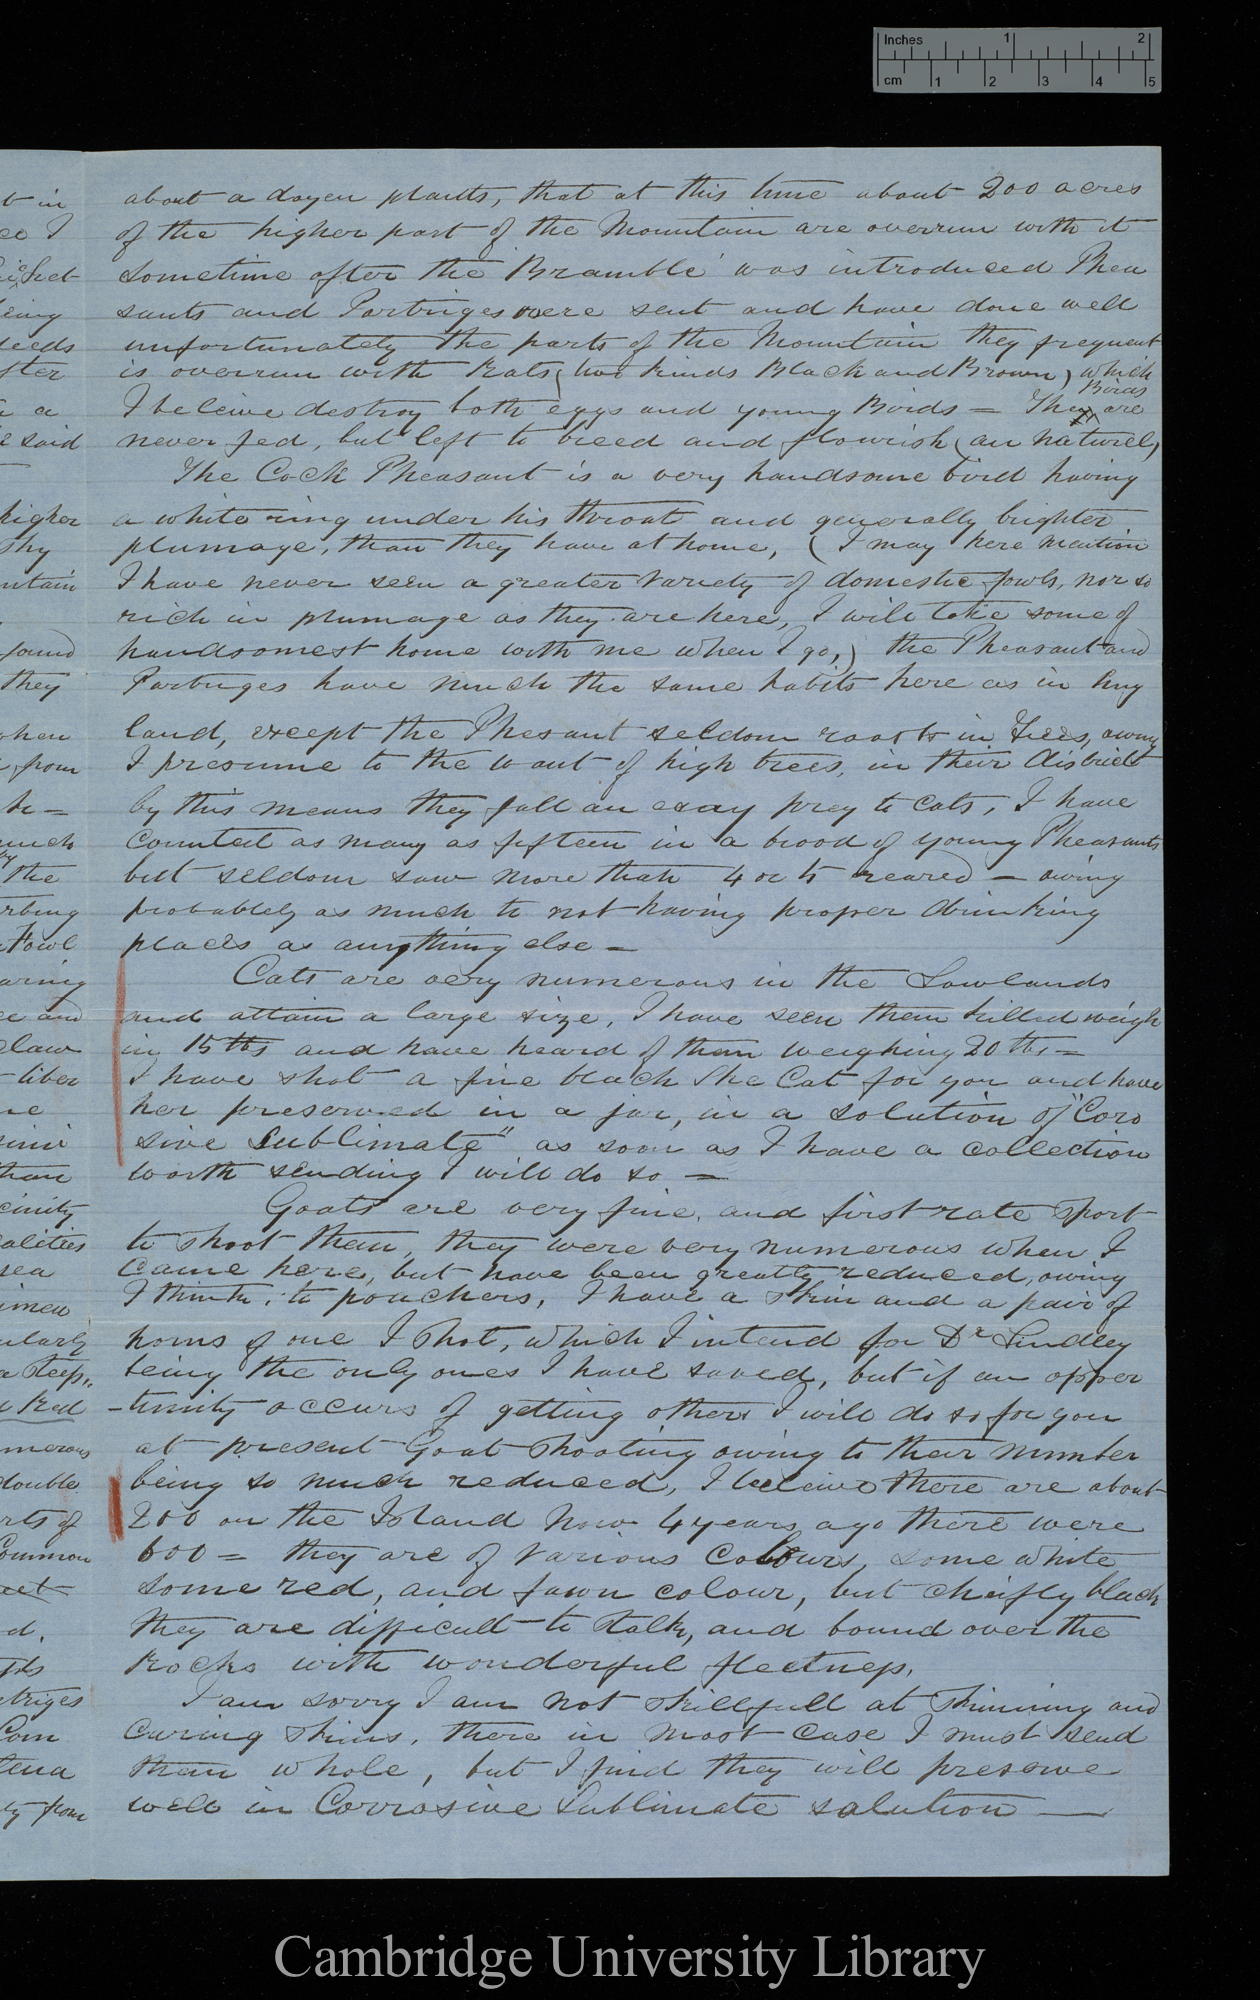 Inches 1 2
cm 1 2 3 4 5
about a dozen plants, that at this time about 200 acres
of the higher part of the Mountain are overrun with it
sometime after the 'Bramble' was introduced Phea
sants and Partriges were sent and have done well
unfortunately the parts of the Mountain they frequent
is overrun with Rats (two kinds Black and Brown) which
I beleive destroy both eggs and young Birds = The Birds are
never fed, but left to breed and flourish (au naturel)
The Cock Pheasant is a very handsome bird having
a white ring under his throat and generally brighter
plumage, than they have at home, (I may here mention
I have never seen a greater variety of domestic fowls, nor so
rich in plumage as they are here, I will take some of
handsomest home with me when I go,) the Pheasant and
Partriges have much the same habits here as in Eng
land, except the Phesant seldom roosts in Trees, owing
I presume to the want of high trees, in their district
by this means they fall an easy prey to Cats, I have
counted as many as fifteen in a brood of young Pheasants
but seldom saw more than 4 or 5 reared – owing
probably as much to not having proper drinking
places as anything else =
Cats are very numerous in the Lowlands
and attain a large size, I have seen them killed weigh
ing 15 lbs and have heard of them weighing 20 lbs =
I have shot a fine black She Cat for you and have
her preserved in a jar, in a solution of "Coro
sive Sublimate" as soon as I have a collection
worth sending I will do so =
Goats are very fine, and first rate sport
to shoot them, they were very numerous when I
came here, but have been greatly reduced, owing
I think, to pouchers, I have a skin and a pair of
horns of one I shot, which I intend for Dr Lindley
being the only ones I have saved, but if an oppor
-tunity occurs of getting others I will do so for you
at present Goat shooting owing to their number
being so much reduced, I beleive there are about
200 on the Island now 4 years ago there were
600 = they are of various colours, some white
some red, and fawn colour, but cheifly black
they are difficult to stalk, and bound over the
Rocks with wonderful fleetness,
I am sorry I am not skillfull at skinning and
curing skins, there in most case I must send
them whole, but I find they will preserve
well in Corrosive Sublimate solution —
t in
higher
found
they
when
from
the
Fowl
and
than
Red
double
Common
Cambridge University Library